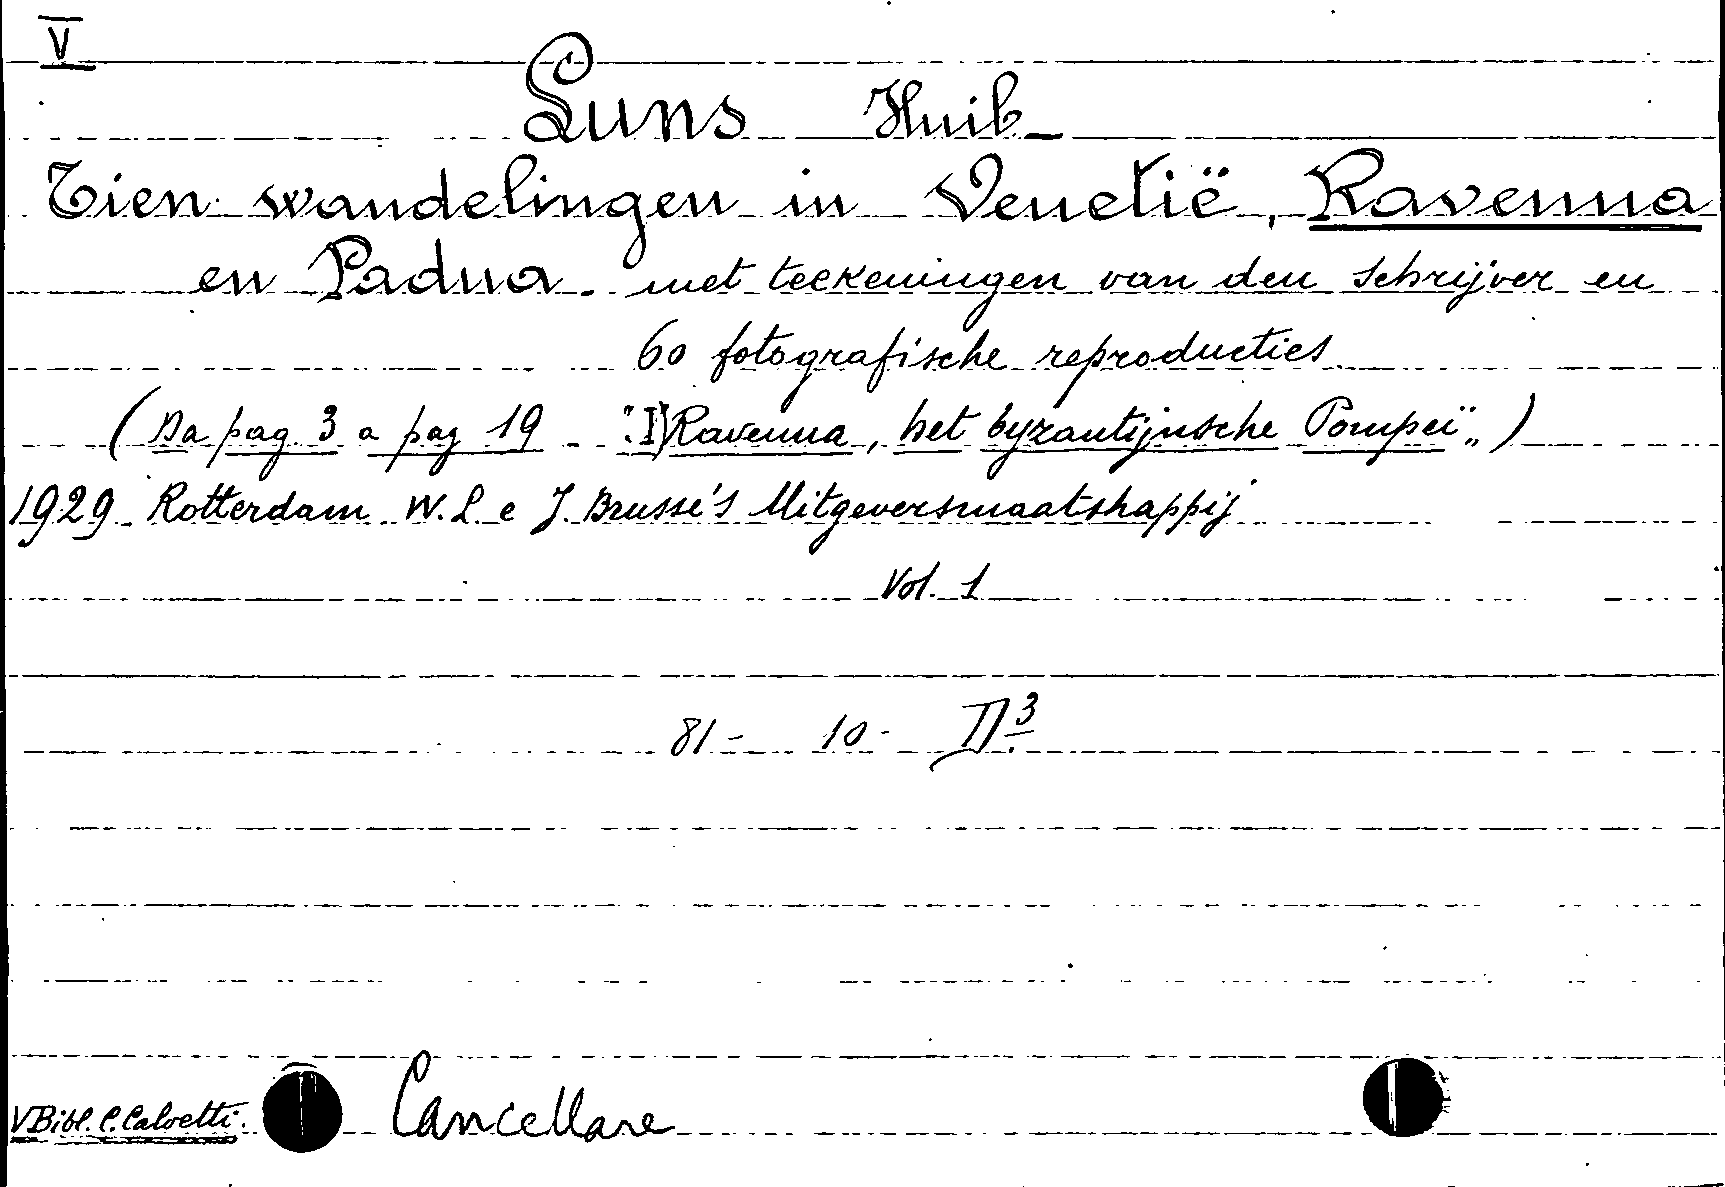 V
Luns Huib -
Tien wandelingen in Venetië, Ravenna
en Padua - met teekeningen van den schrijver en
60 fotografische reproducties
(Da pag. 3 a pag 19 - "I) Ravenna, het byzantijnsche Pompeï„)
1929 - Rotterdam W. L. e J. Brussé's Uitgeversmaatshappij
Vol. 1
81 - 10 - II 3
V Bibl. C. Calvetti. Cancellare